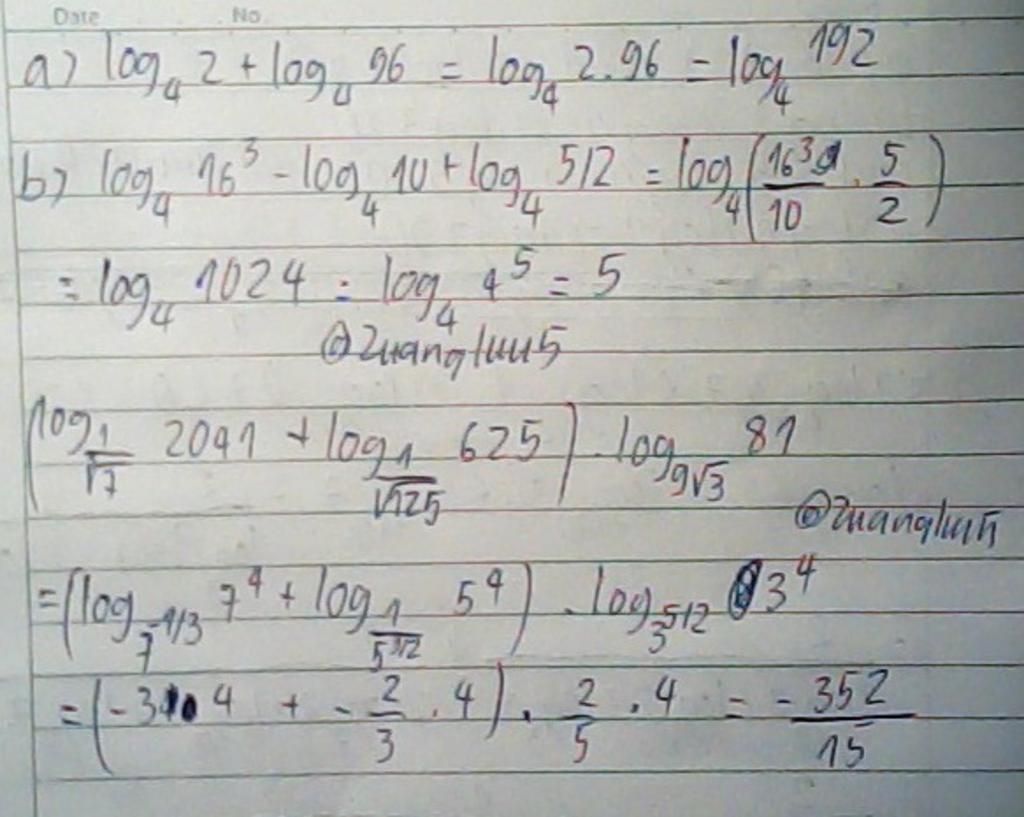 Date No.
a) log₄ 2 + log₄ 96 = log₄ 2.96 = log₄ 192
b) log₄ 16³ - log₄ 10 + log₄ 5/2 = log₄(16³/10 . 5/2)
= log₄ 1024 = log₄ 4⁵ = 5
@Zuangluu5
(log_1/√7 2041 + log_1/√125 625) . log_9√3 81
@Zuangluu5
= (log_7^-1/3 7⁴ + log_1/5^3/2 5⁴) . log_3^5/2 3⁴
= (-3.4 + -2/3 . 4) . 2/5 . 4 = -352/15